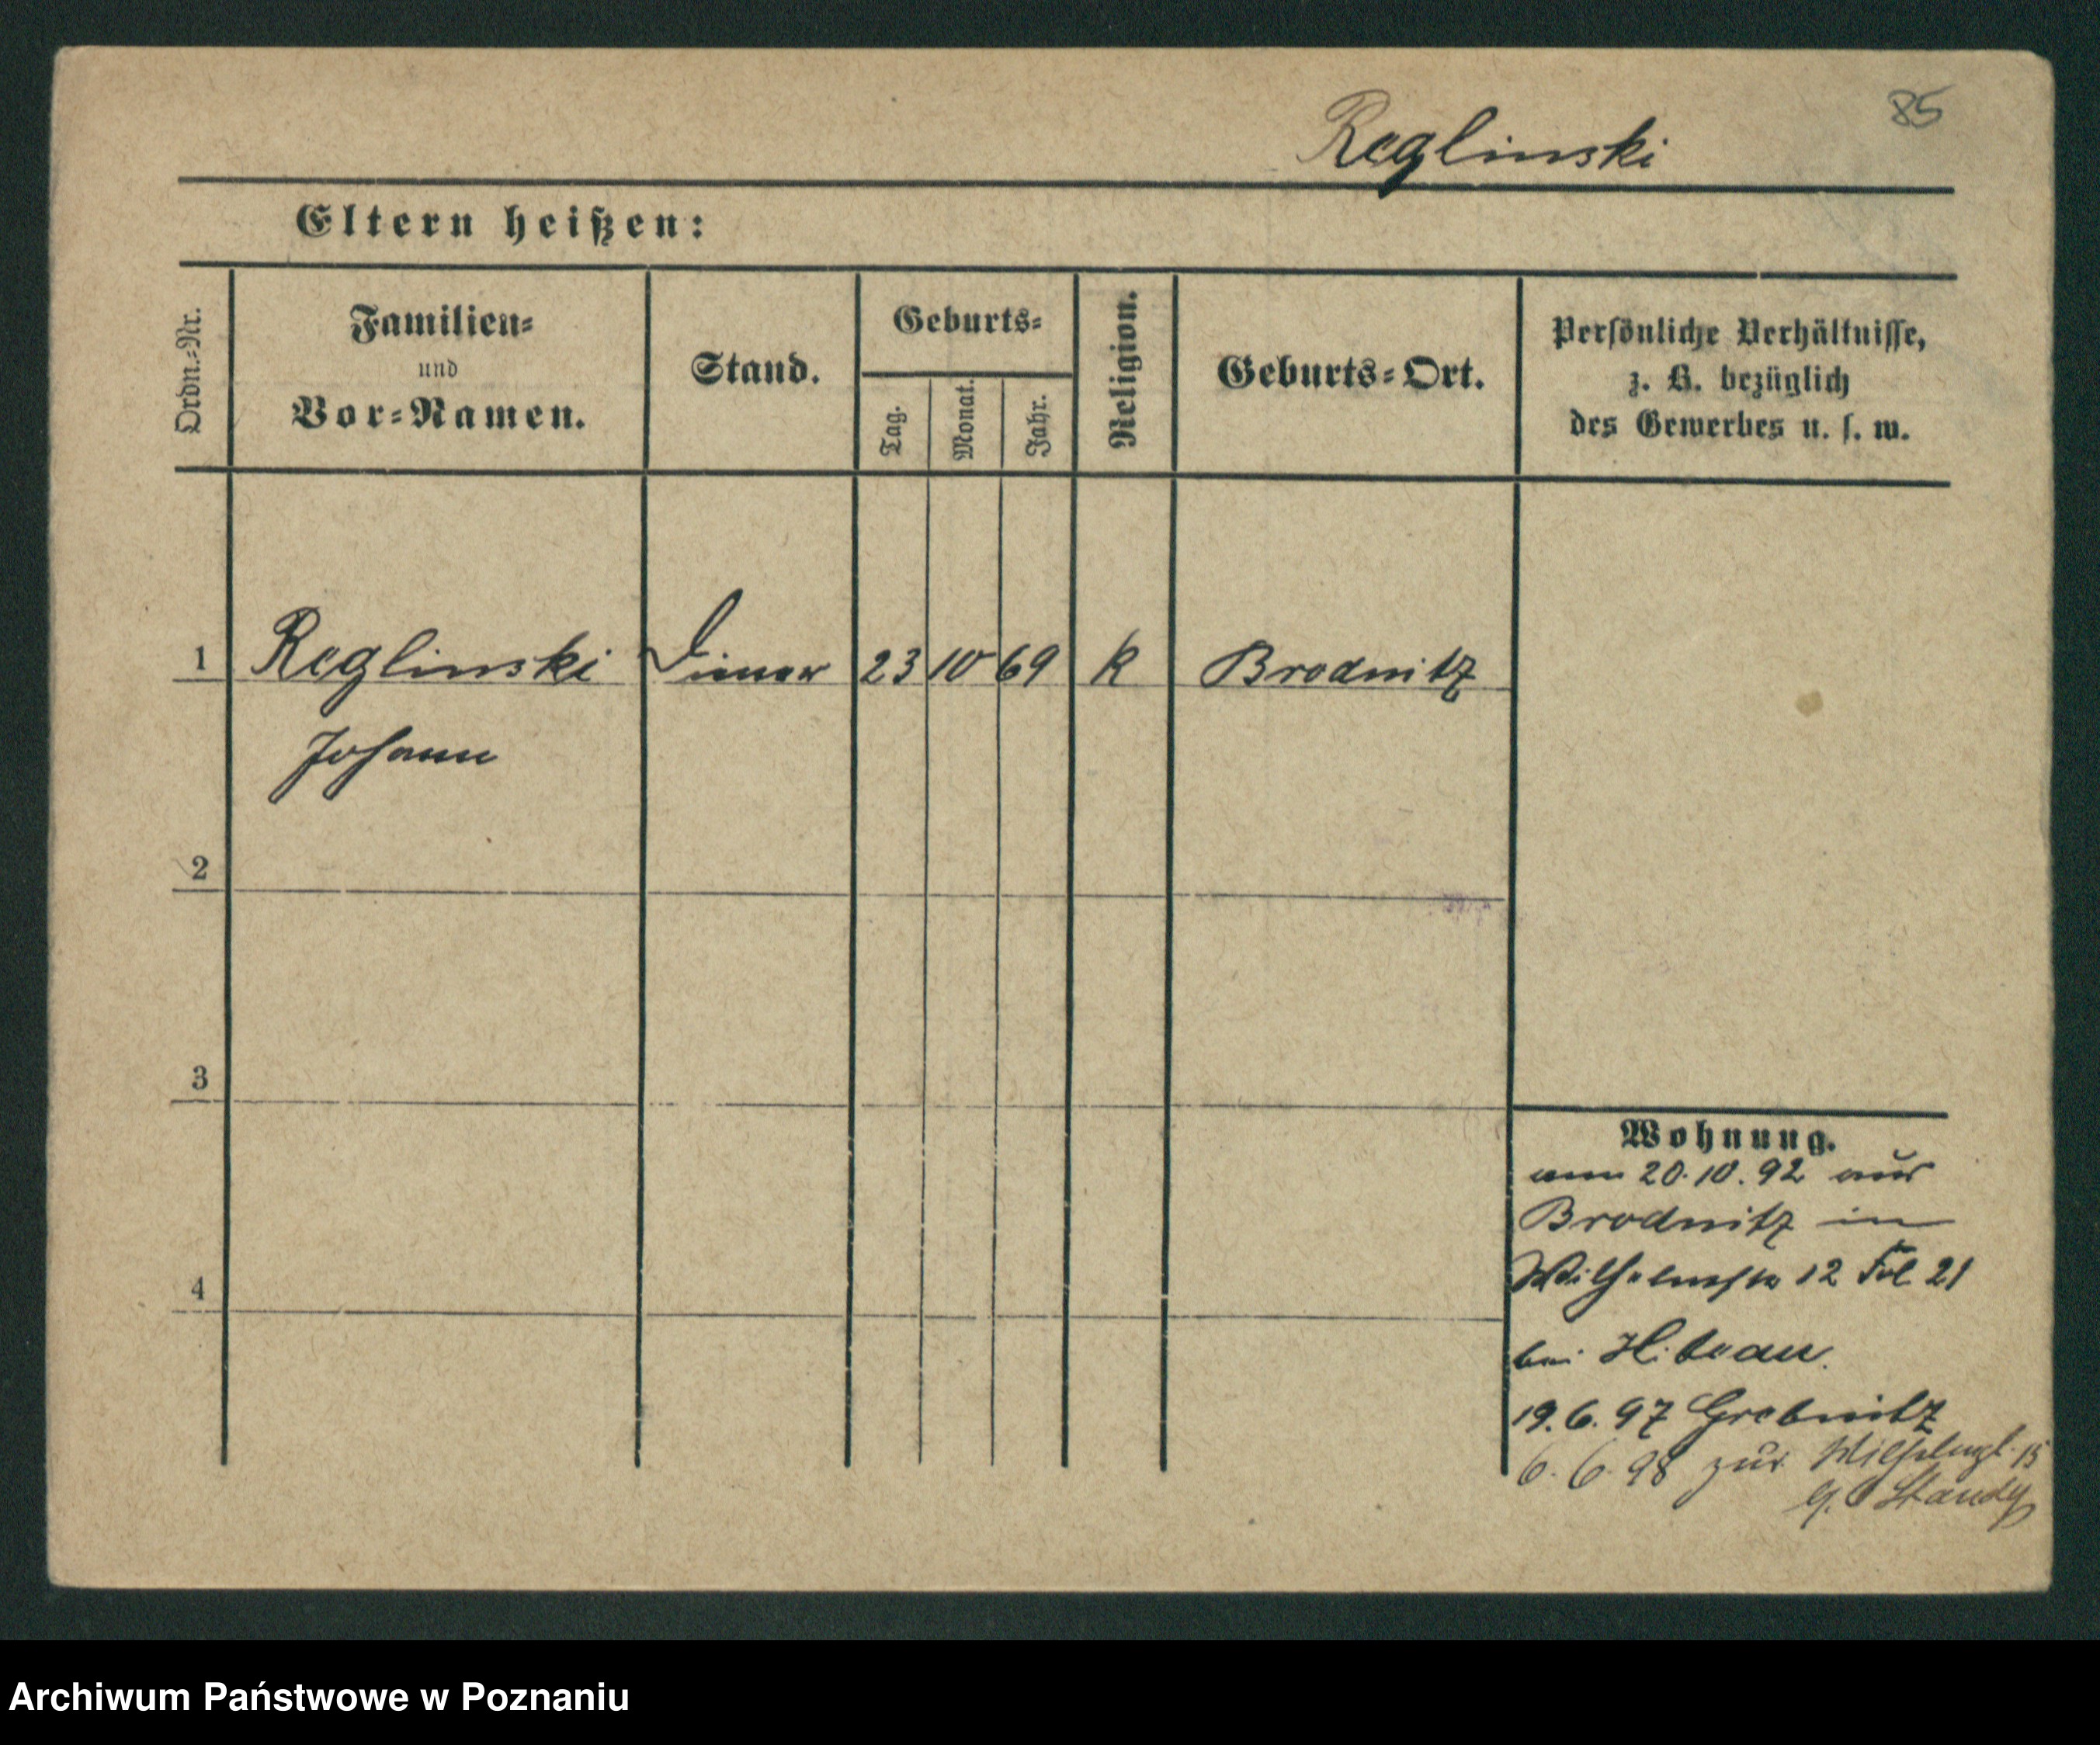 85
Reglinski
Eltern heißen:
Ordn.-Nr.
Familien-
und
Vor-Namen.
Stand.
Geburts-
Tag.
Monat.
Jahr.
Religion.
Geburts-Ort.
Persönliche Verhältnisse,
z. B. bezüglich
des Gewerbes u. s. w.
1 Reglinski Diener 23 10 69 k Brodnitz
Johann
2
3
4
Wohnung.
am 20.10.92 aus
Brodnitz in
Wilhelmstr 12 Fol 21
bei
19.6.97 Grebnitz
6. 6. 98 zur 15
Standy
Archiwum Państwowe w Poznaniu